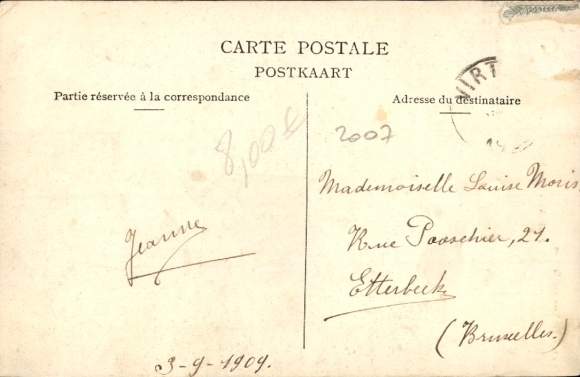 CARTE POSTALE
POSTKAART
Partie réservée à la correspondance
Adresse du destinataire
VIRT
8,00€
2007
Mademoiselle Louise Moris
Rue Paaschier, 27.
Etterbeek
(Bruxelles.)
Jeanne
3-9-1909.